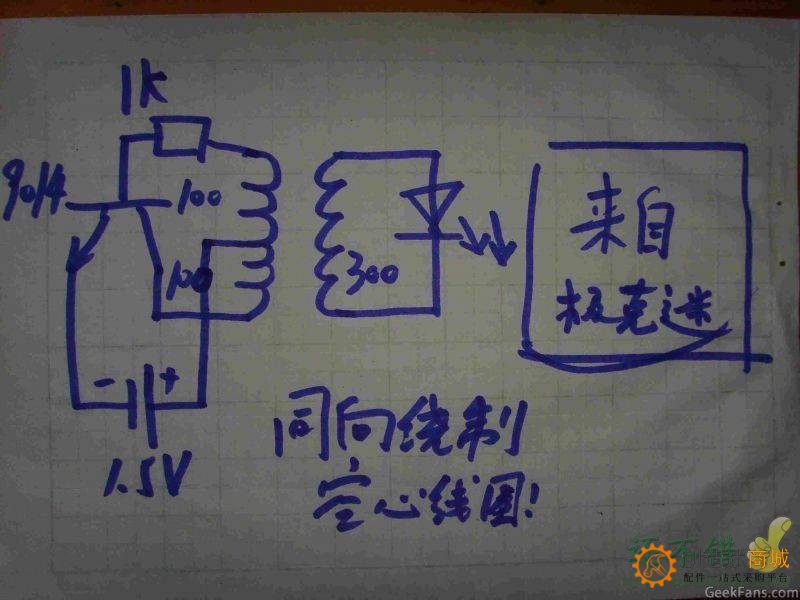 1K
9014
100
100
300
来自
极克迷
- +
1.5V
同向绕制
空心线圈!
还不错
商城
配件一站式采购平台
GeekFans.com